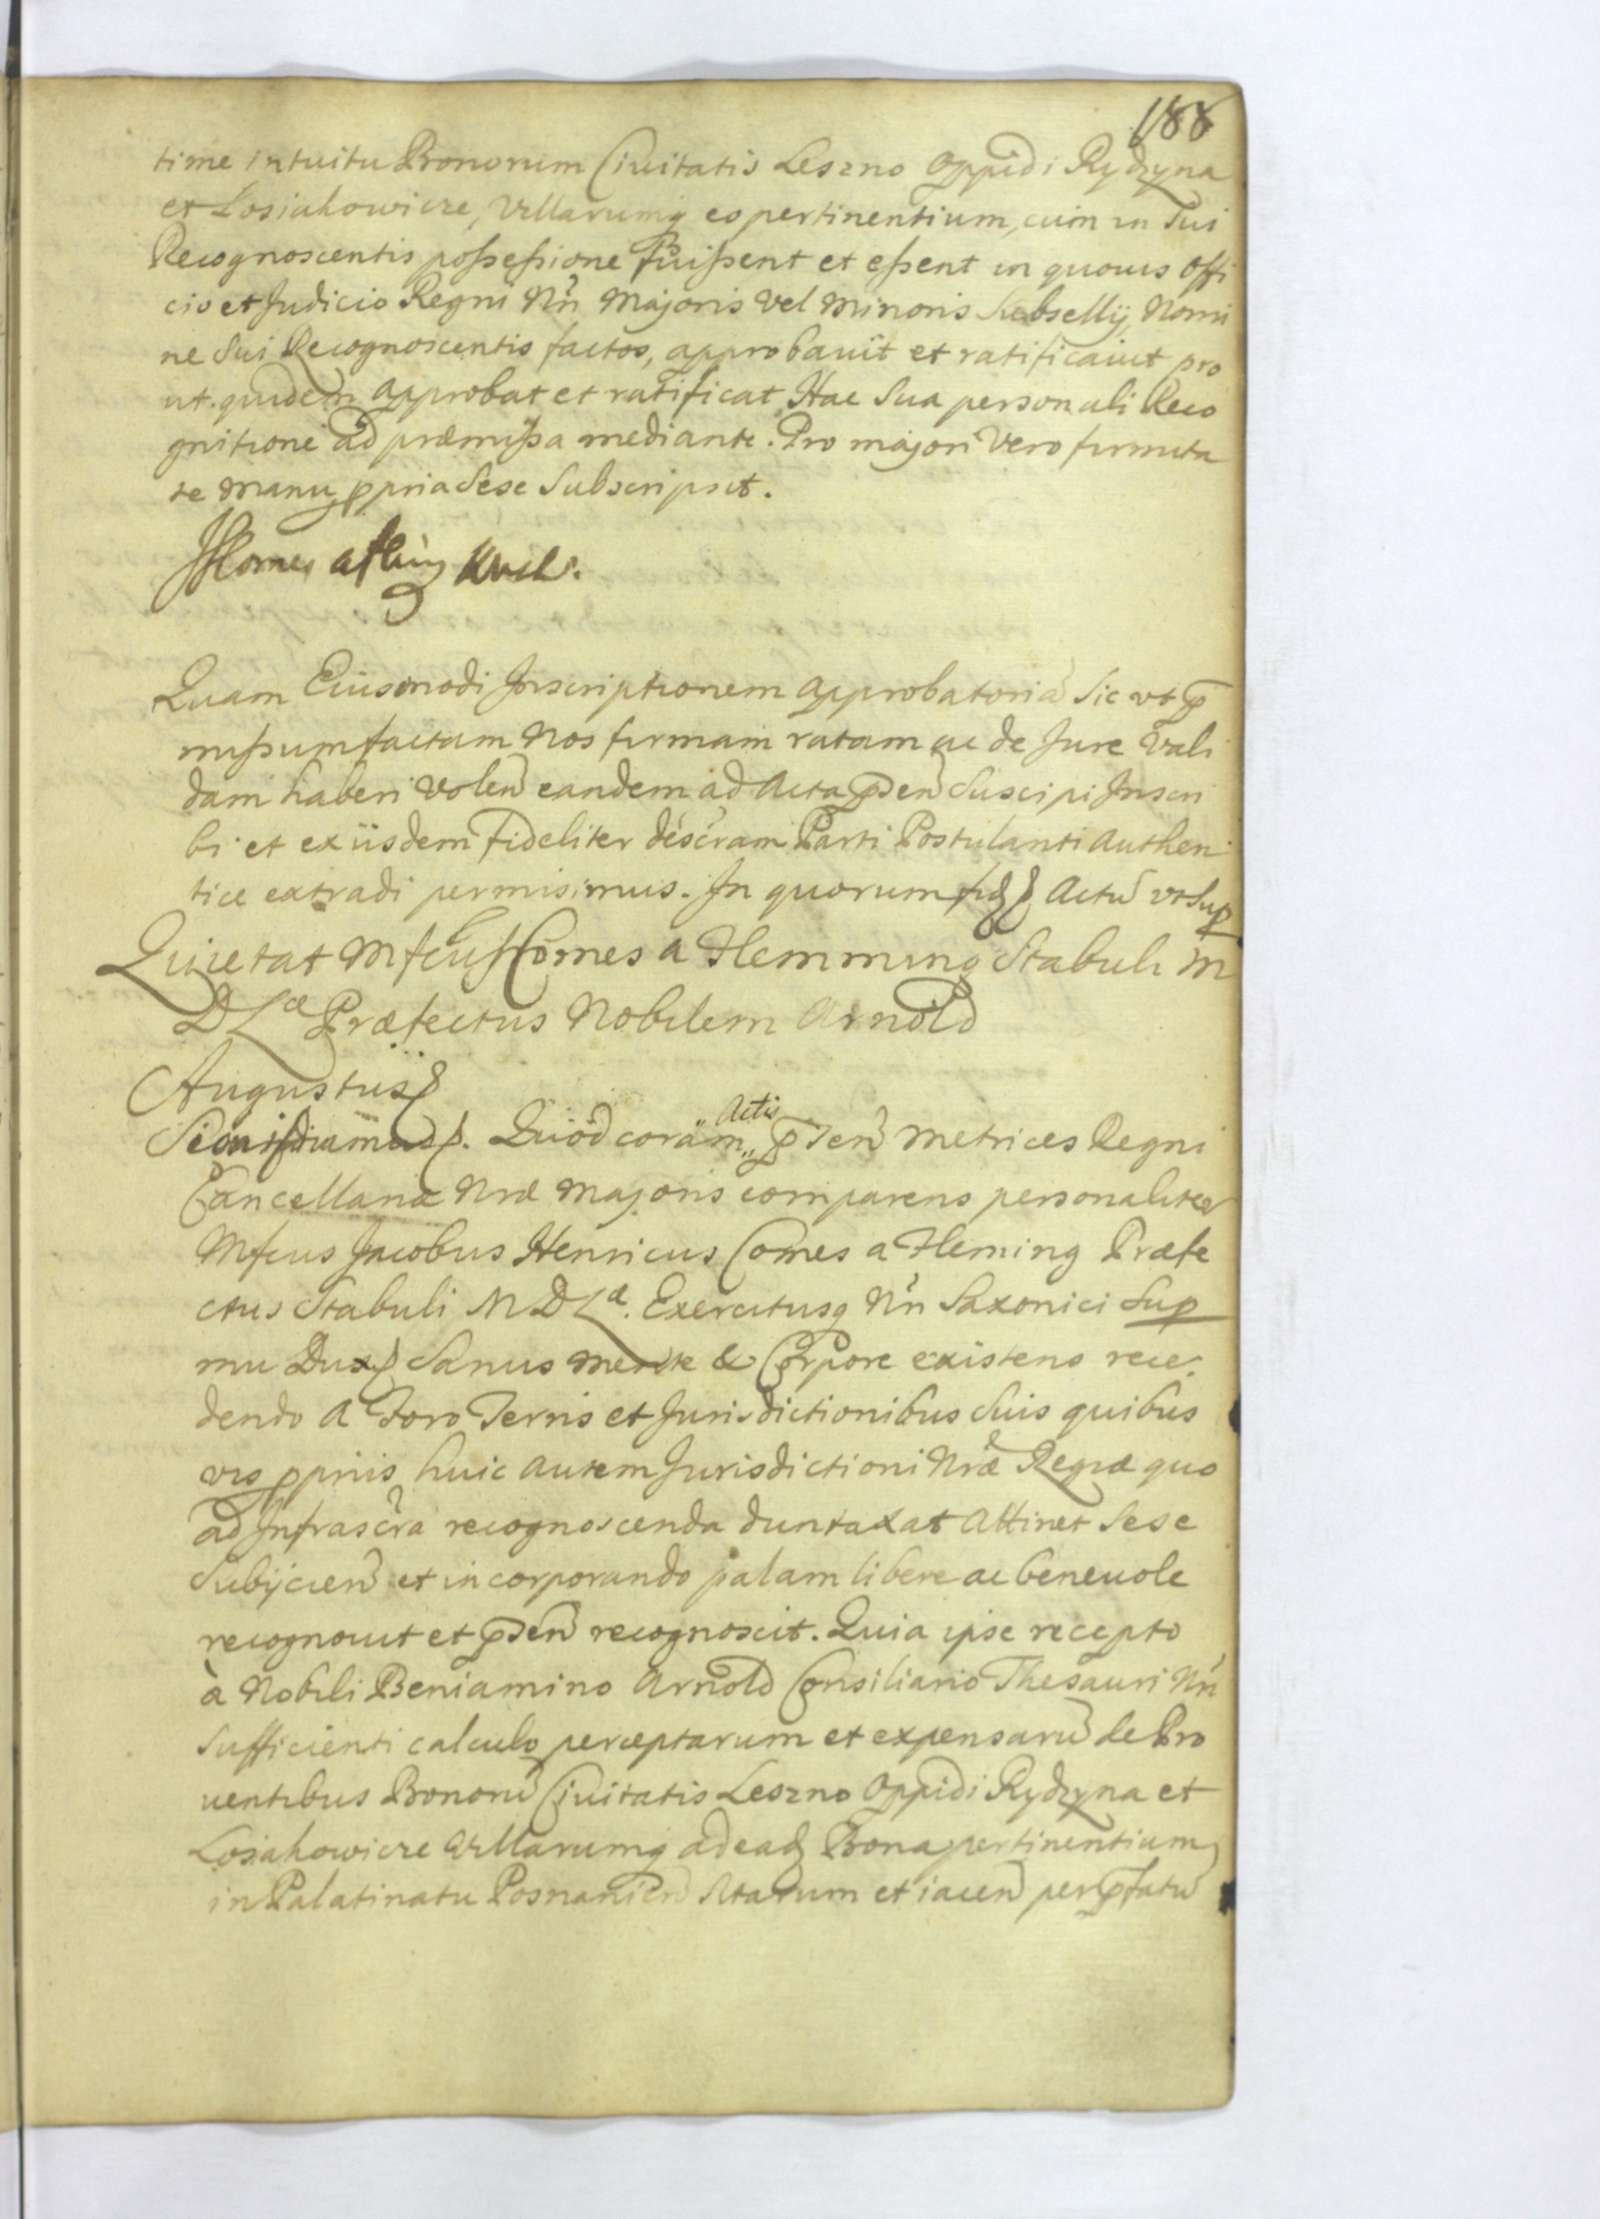 188
time intuitu Bonorum Civitatis Leszno Oppidi Rydzyna
et Losiakowicze, Villarumq eo pertinentium, cum in Sui
Recognoscentis possessione fuissent et essent in quovis Offi
cio et Judicio Regni Nri Majoris vel Minoris Subsellij, Nomi
ne Sui Recognoscentis factos, approbavit et ratificavit pro
ut quidem approbat et ratificat Hac Sua personali Reco
gnitione ad præmissa mediante. Pro majori Vero firmita
te manu ppria Sese Subscripsit.
Quam Eiusmodi Inscriptionem approbatoria Sic ut p
missum factam Nos firmam ratam ac de Jure Vali
dam haberi volen eandem ad Acta pnsen Suscipi Inscri
bi et ex iisdem fideliter descram Parti Postulanti Authen
tice extradi permisimus. In quorum fid Actu ut Sup
Quietat Mfcus Comes a Flemming Stabuli M
D L æ Præfectus Nobilem Arnold
Augustus
Quod coram Actis psen Metrices Regni
Cancellariæ Nræ Majoris comparens personaliter
Mfcus Jacobus Henricus Comes a Fleming Præfe
ctus Stabuli M D L æ. Exercitusq Nri Saxonici Sup
mu Dux Sanus mente & Corpore existens rece
dendo a Foro Terris et Jurisdictionibus Suis quibus
vis pprijs huic autem Jurisdictioni Nræ Regiæ quo
ad Infrascra recognoscenda duntaxat attinet Sese
Subijcien et incorporando palam libere ac benevole
recognovit et psen recognoscit. Quia ipse recepto
à Nobili Beniamino Arnold Consiliario Thesauri Nri
Sufficienti calculo perceptarum et expensaru de Pro
ventibus Bonoru Civitatis Leszno Oppidi Rydzyna et
Losiakowicze Villarumq ad ead Bona pertinentium
in Palatinatu Posnanien Sitarum et iacen per pfatu